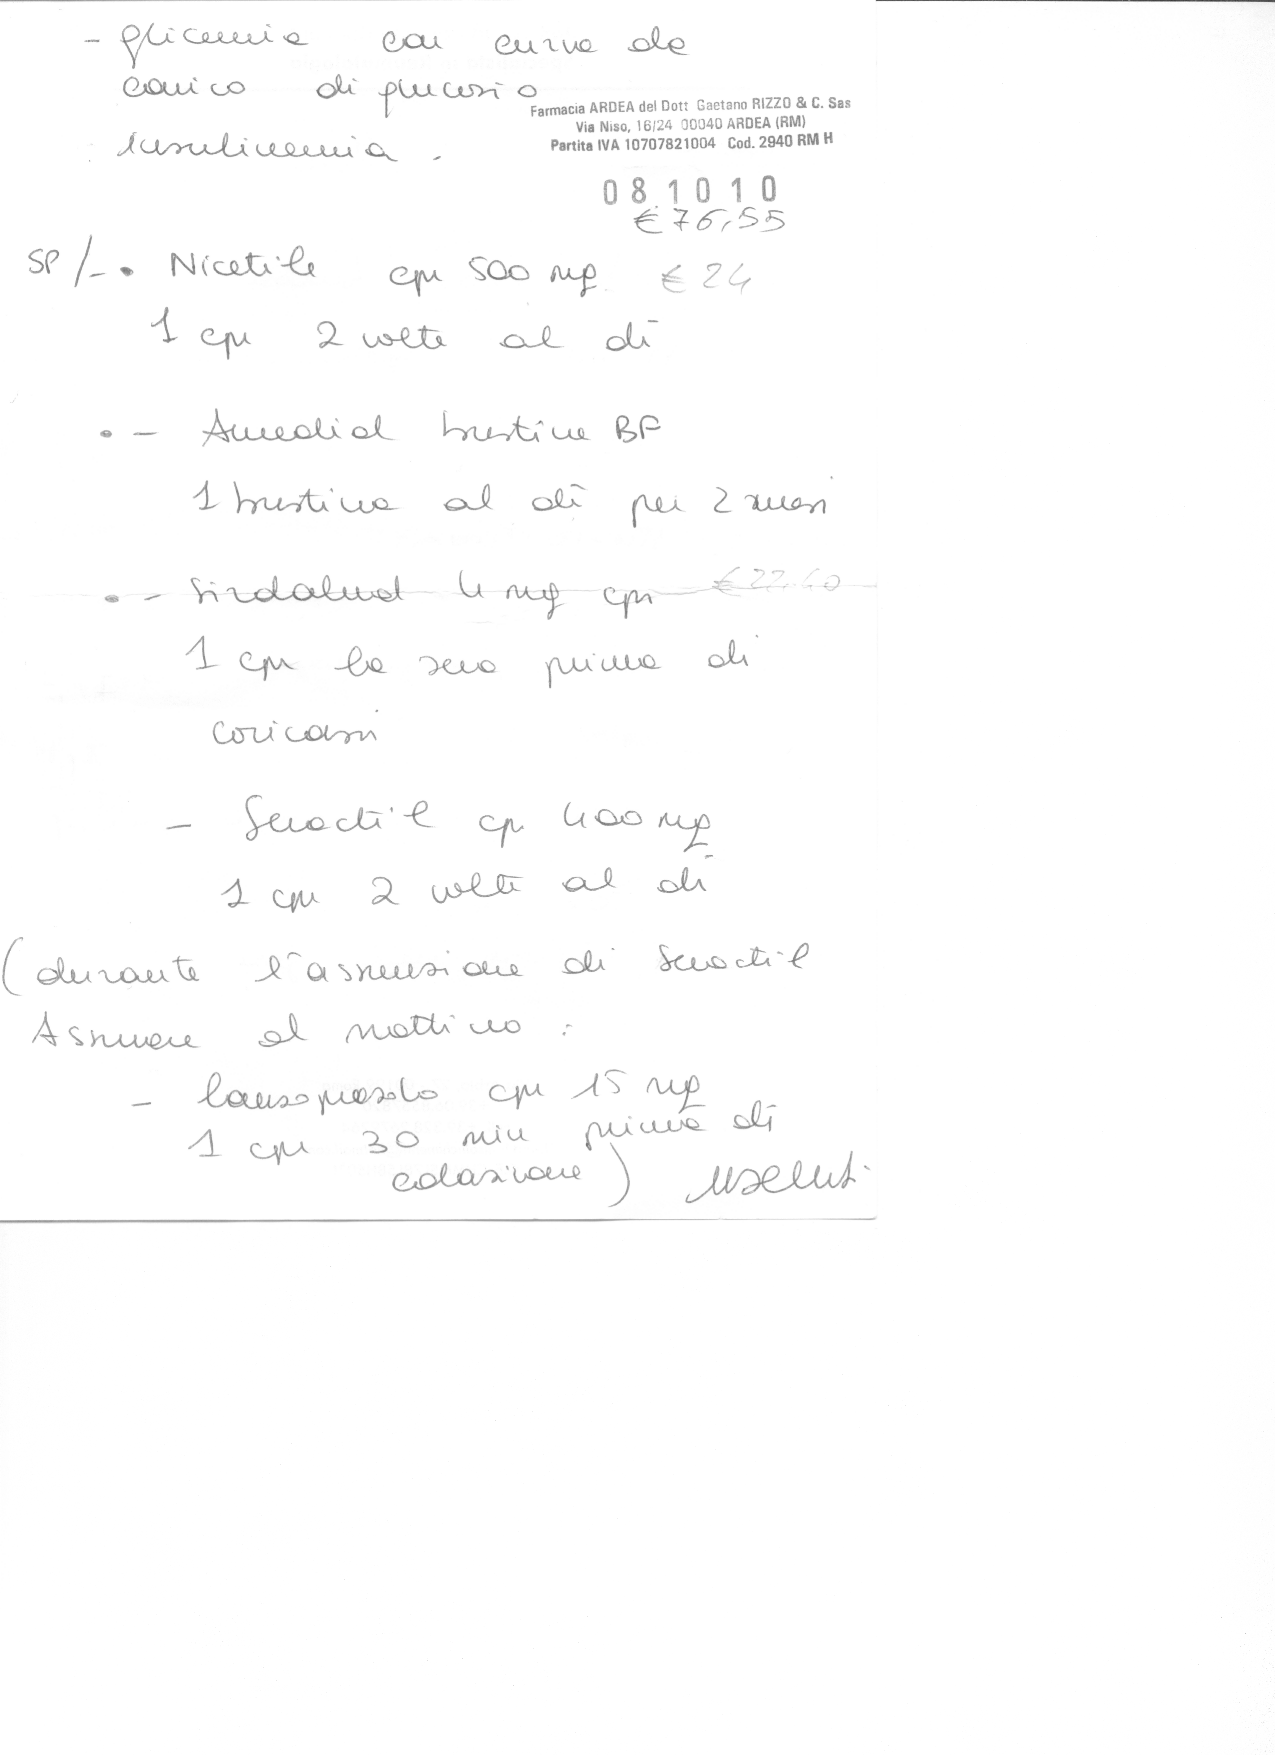 - glicemia con curva da
carico di glucosio
Insulinemia.
Farmacia ARDEA del Dott Gaetano RIZZO & C. Sas
Via Niso, 16/24 00040 ARDEA (RM)
Partita IVA 10707821004 Cod. 2940 RM H
08 10 10
€ 76,55
SP/- • Nicetile cpr 500 mg € 24
1 cpr 2 volte al dì
• - Amedial bustine BP
1 bustina al dì per 2 mesi
• - Sirdalud 4 mg cpr
1 cpr la sera prima di
coricarsi
- Seractil cp 400 mg
1 cpr 2 volte al dì
(durante l'assunzione di Seractil
Assumere al mattino:
- lansoprazolo cpr 15 mg
1 cpr 30 min prima di
colazione)